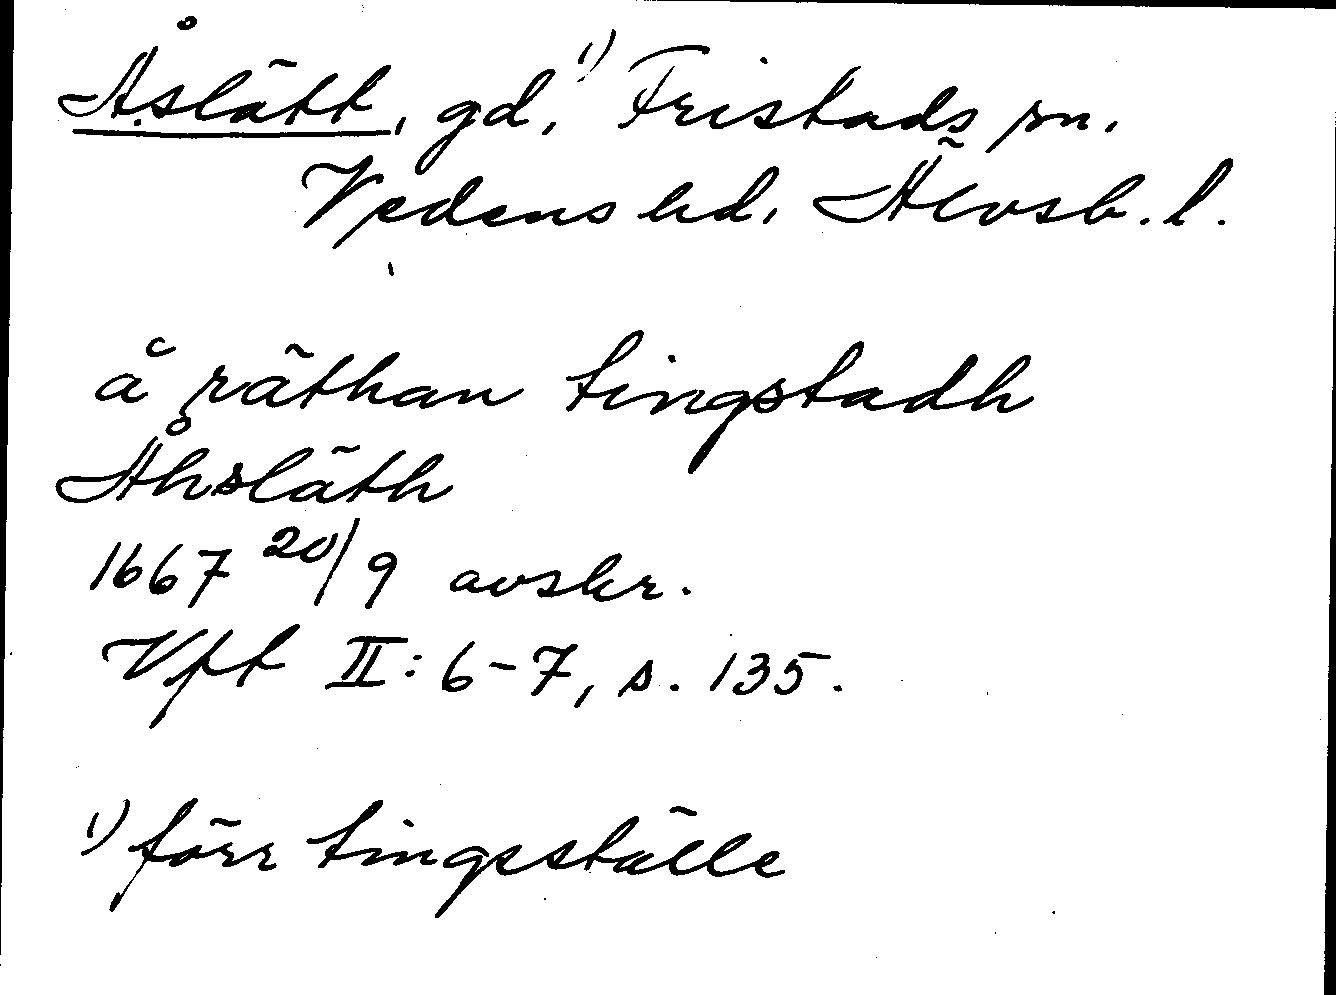 Åslätt, gd,¹⁾ Fristads sn.
Vedens hd, Älvsb. l.
å räthan tingstadh
Åhsläth
1667 20/9 avskr.
Vft II: 6-7, s. 135.
¹⁾ förr tingsställe